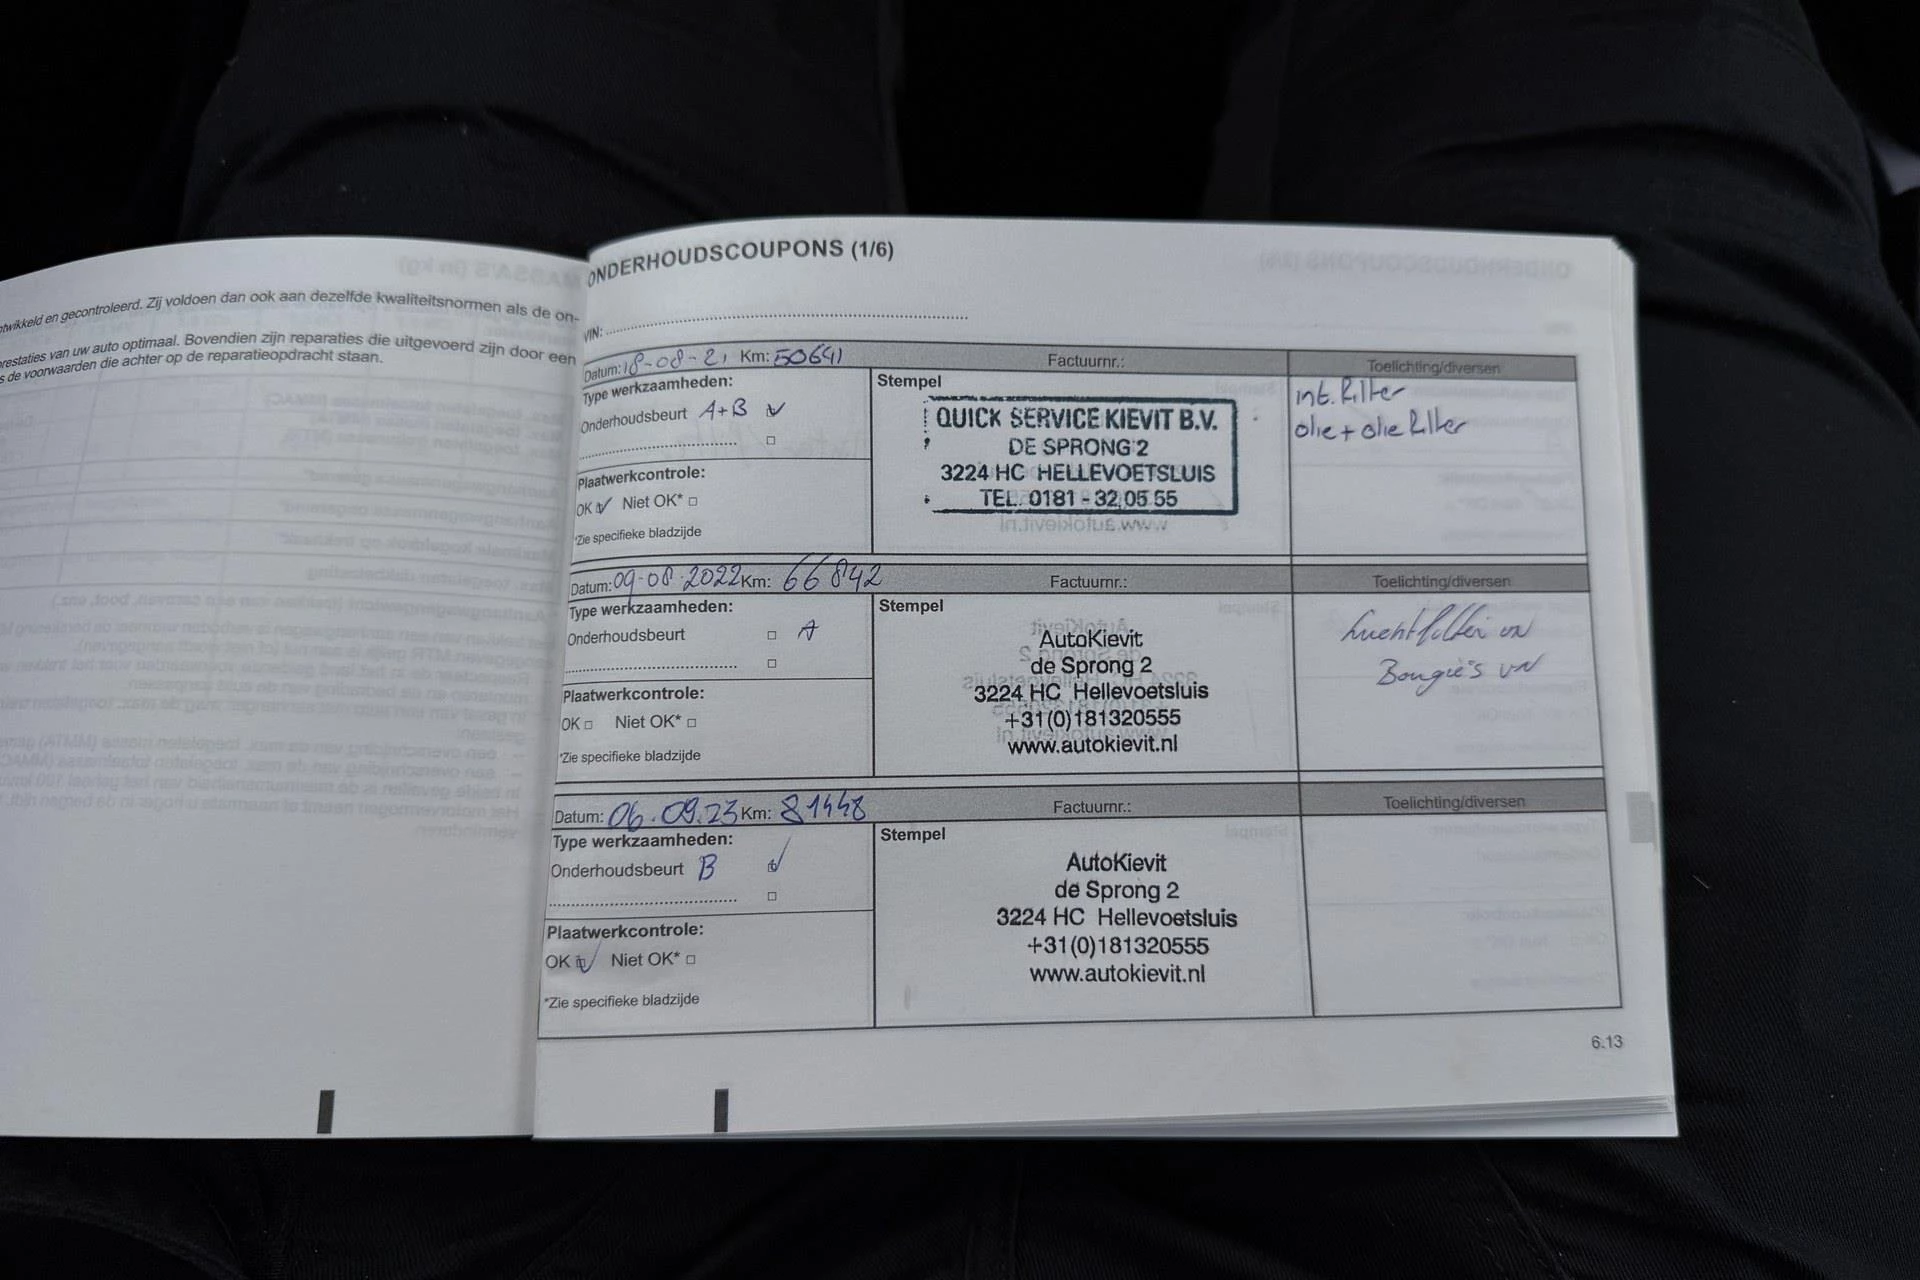 ntwikkeld en gecontroleerd. Zij voldoen dan ook aan dezelfde kwaliteitsnormen als de on-
prestaties van uw auto optimaal. Bovendien zijn reparaties die uitgevoerd zijn door een
s de voorwaarden die achter op de reparatieopdracht staan.
ONDERHOUDSCOUPONS (1/6)
VIN:
Datum: 18-08-21 Km: 50641 Factuurnr.: Toelichting/diversen
Type werkzaamheden:
Onderhoudsbeurt A+B
Plaatwerkcontrole:
OK Niet OK*
*Zie specifieke bladzijde
Stempel
QUICK SERVICE KIEVIT B.V.
DE SPRONG 2
3224 HC HELLEVOETSLUIS
TEL. 0181 - 32.05.55
int. filter
olie + olie filter
Datum: 09-08-2022 Km: 66842 Factuurnr.: Toelichting/diversen
Type werkzaamheden:
Onderhoudsbeurt A
Plaatwerkcontrole:
OK Niet OK*
*Zie specifieke bladzijde
Stempel
AutoKievit
de Sprong 2
3224 HC Hellevoetsluis
+31(0)181320555
www.autokievit.nl
Luchtfilter vn
Bougie's vn
Datum: 06.09.23 Km: 81448 Factuurnr.: Toelichting/diversen
Type werkzaamheden:
Onderhoudsbeurt B
Plaatwerkcontrole:
OK Niet OK*
*Zie specifieke bladzijde
Stempel
AutoKievit
de Sprong 2
3224 HC Hellevoetsluis
+31(0)181320555
www.autokievit.nl
6.13